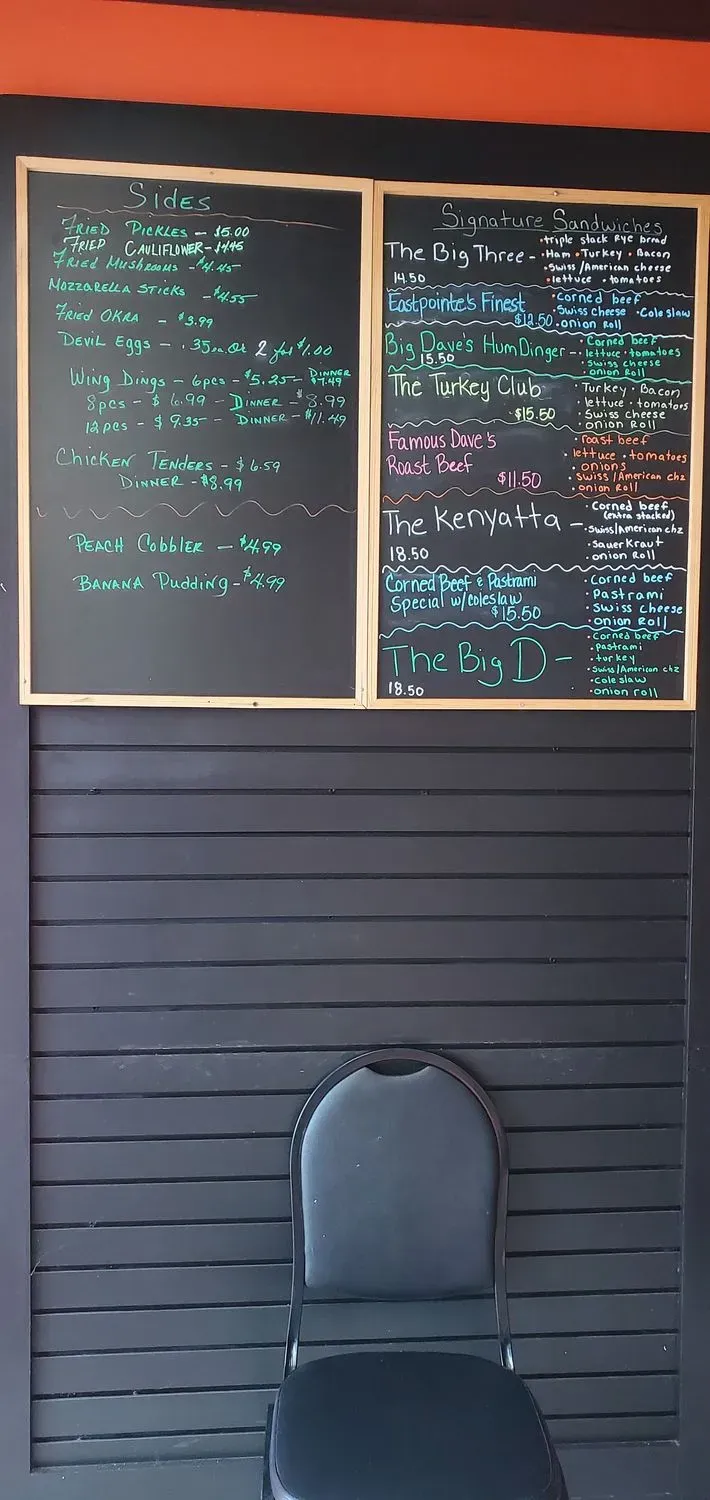 Sides
FRIED PICKLES - $5.00
FRIED CAULIFLOWER - $4.45
FRIED MUSHROOMS - $4.45
MOZZARELLA STICKS - $4.55
FRIED OKRA - $3.99
DEVIL EGGS - .35ea. Or 2 for $1.00
WING DINGS - 6pcs - $5.25 - DINNER $7.49
8pcs - $6.99 - DINNER - $8.99
12pcs - $9.35 - DINNER - $11.49
CHICKEN TENDERS - $6.59
DINNER - $8.99
PEACH CobblER - $4.99
BANANA Pudding - $4.99
Signature Sandwiches
The Big Three - • triple stack RYE bread
• Ham • Turkey • Bacon
• Swiss/American cheese
• lettuce • tomatoes
14.50
Eastpointe's Finest • corned beef
• Swiss cheese • Coleslaw
$12.50 • onion Roll
Big Dave's HumDinger - • Corned beef
• lettuce • tomatoes
15.50 • Swiss cheese
• onion Roll
The Turkey Club • Turkey • Bacon
• lettuce • tomatoes
$15.50 • Swiss cheese
• onion Roll
Famous Dave's • roast beef
Roast Beef • lettuce • tomatoes
• onions
$11.50 • Swiss/American chz
• onion Roll
The Kenyatta - • Corned beef
(extra stacked)
• Swiss/American chz
• Sauer Kraut
18.50 • onion Roll
Corned Beef & Pastrami • Corned beef
Special w/coleslaw • Pastrami
$15.50 • Swiss cheese
• onion Roll
The Big D - • Corned beef
• pastrami
• turkey
• Swiss/American chz
• coleslaw
18.50 • onion roll